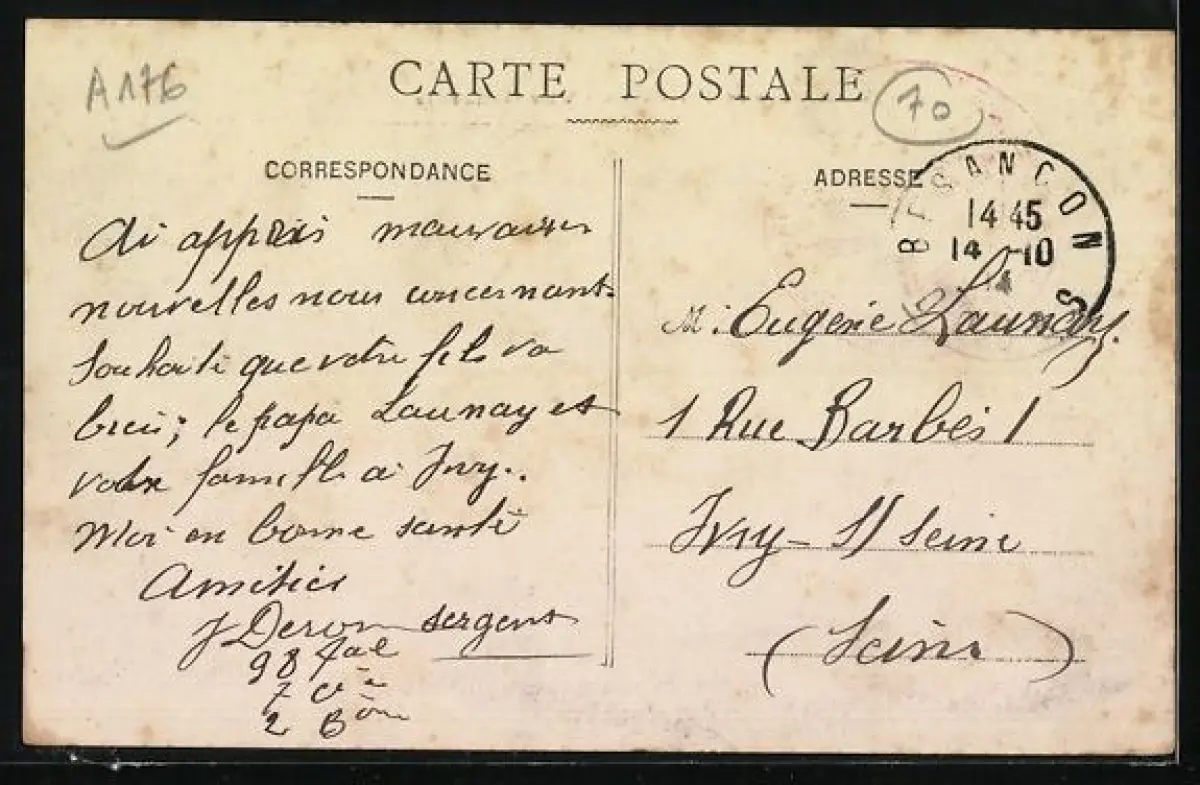 A176
CARTE POSTALE
70
CORRESPONDANCE
ADRESSE
BESANCON
14 45
14 -10
Ai appris mauvaises
nouvelles nous concernant.
Souhaite que votre fils va
bien ; le papa Launay et
votre famille à Ivry.
Moi en bonne santé
Amitiés
sergent
7 Cie
2 Bon
M. Eugène Launay.
1 Rue Barbès 1
Ivry - S/ Seine
(Seine)